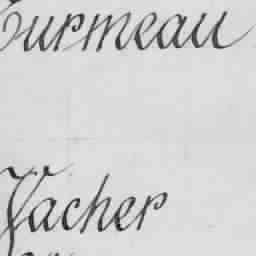 Turmeau
Vacher